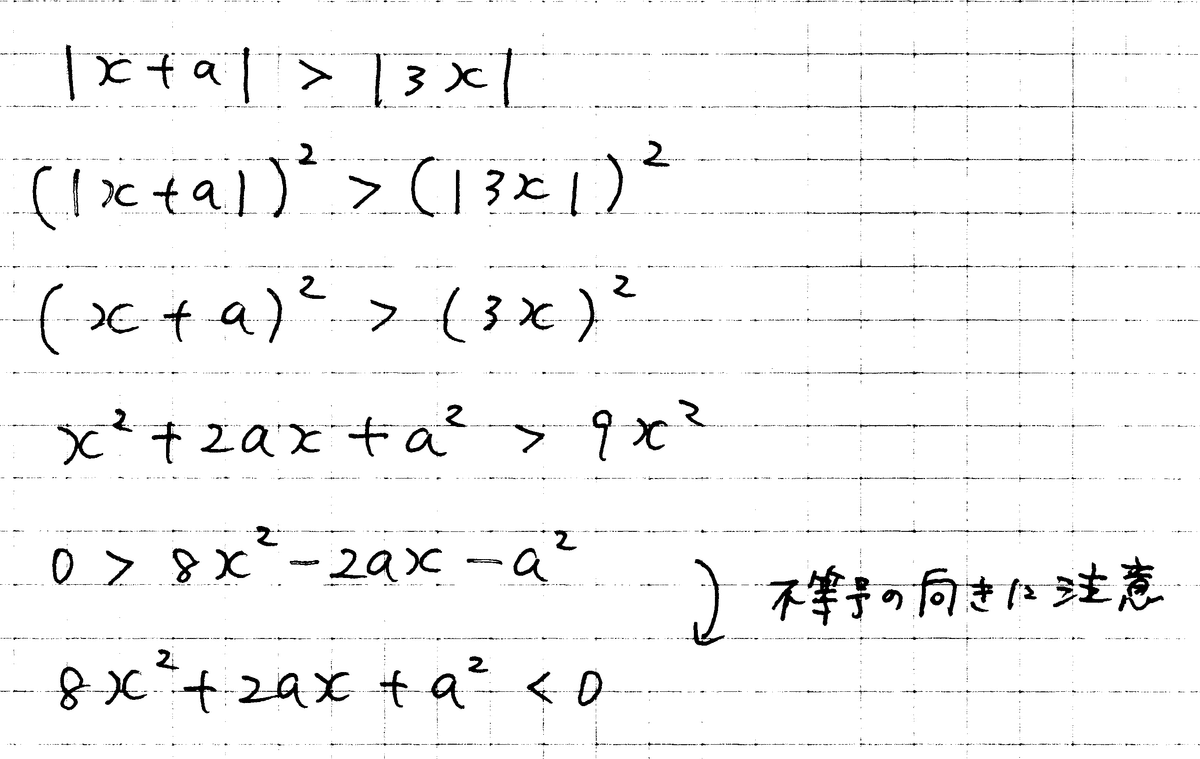 |x+a| > |3x|
(|x+a|)² > (|3x|)²
(x+a)² > (3x)²
x²+2ax+a² > 9x²
0 > 8x²-2ax-a²
不等号の向きに注意
8x²+2ax+a² < 0